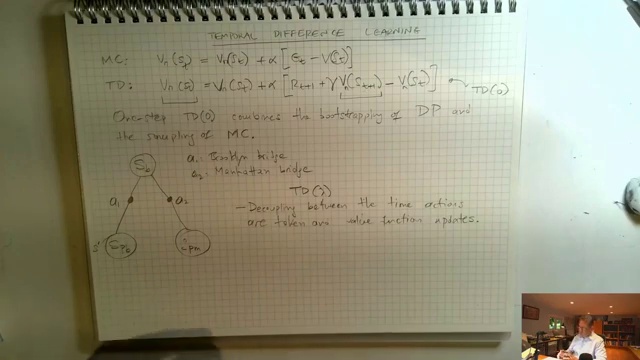 TEMPORAL DIFFERENCE LEARNING
MC: Vπ(St) = Vπ(St) + α [Gt − V(St)]
TD: Vπ(St) = Vπ(St) + α [Rt+1 + γ Vπ(St+1) − Vπ(St)] TD(0)
One-step TD(0) combines the bootstrapping of DP and
the sampling of MC.
Sb
a1: Brooklyn bridge
a2: Manhattan bridge
a1
a2
TD(λ)
- Decoupling between the time actions
are taken and value function updates.
s'